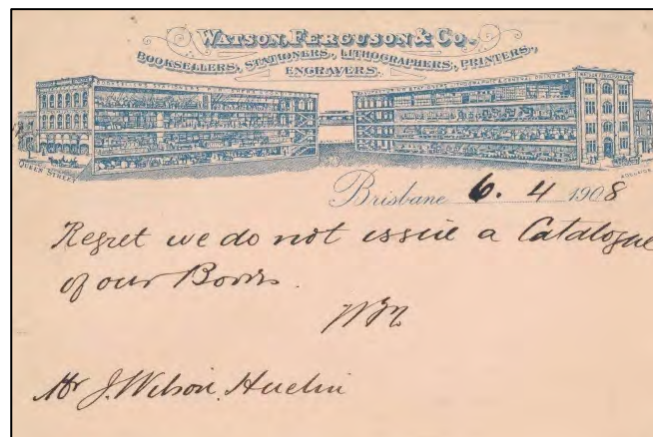 WATSON, FERGUSON & CO.
BOOKSELLERS, STATIONERS, LITHOGRAPHERS, PRINTERS,
ENGRAVERS.
QUEEN STREET
Brisbane 6. 4 1908
Regret we do not issue a Catalogue
of our Books.
Mr J. Wilson